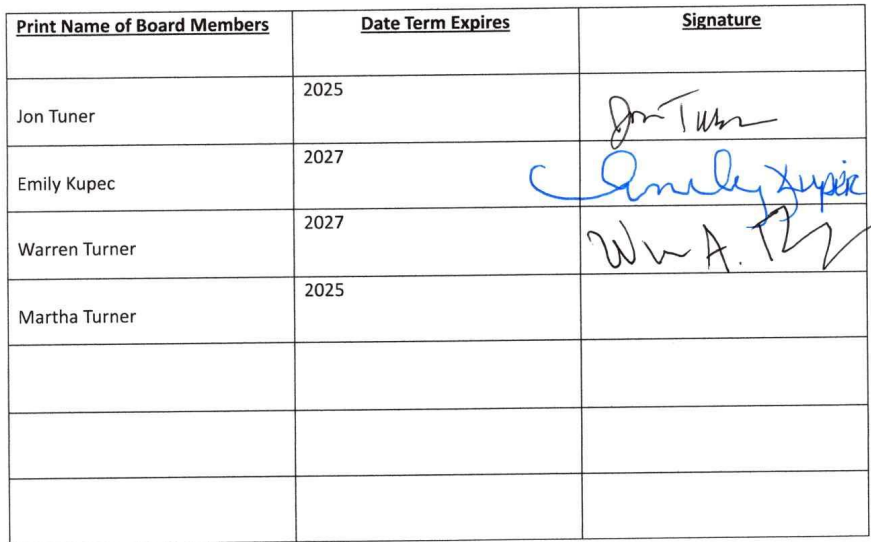 Print Name of Board Members Date Term Expires Signature
Jon Tuner 2025 Jon Turner
Emily Kupec 2027 Emily Kupec
Warren Turner 2027 A.
Martha Turner 2025